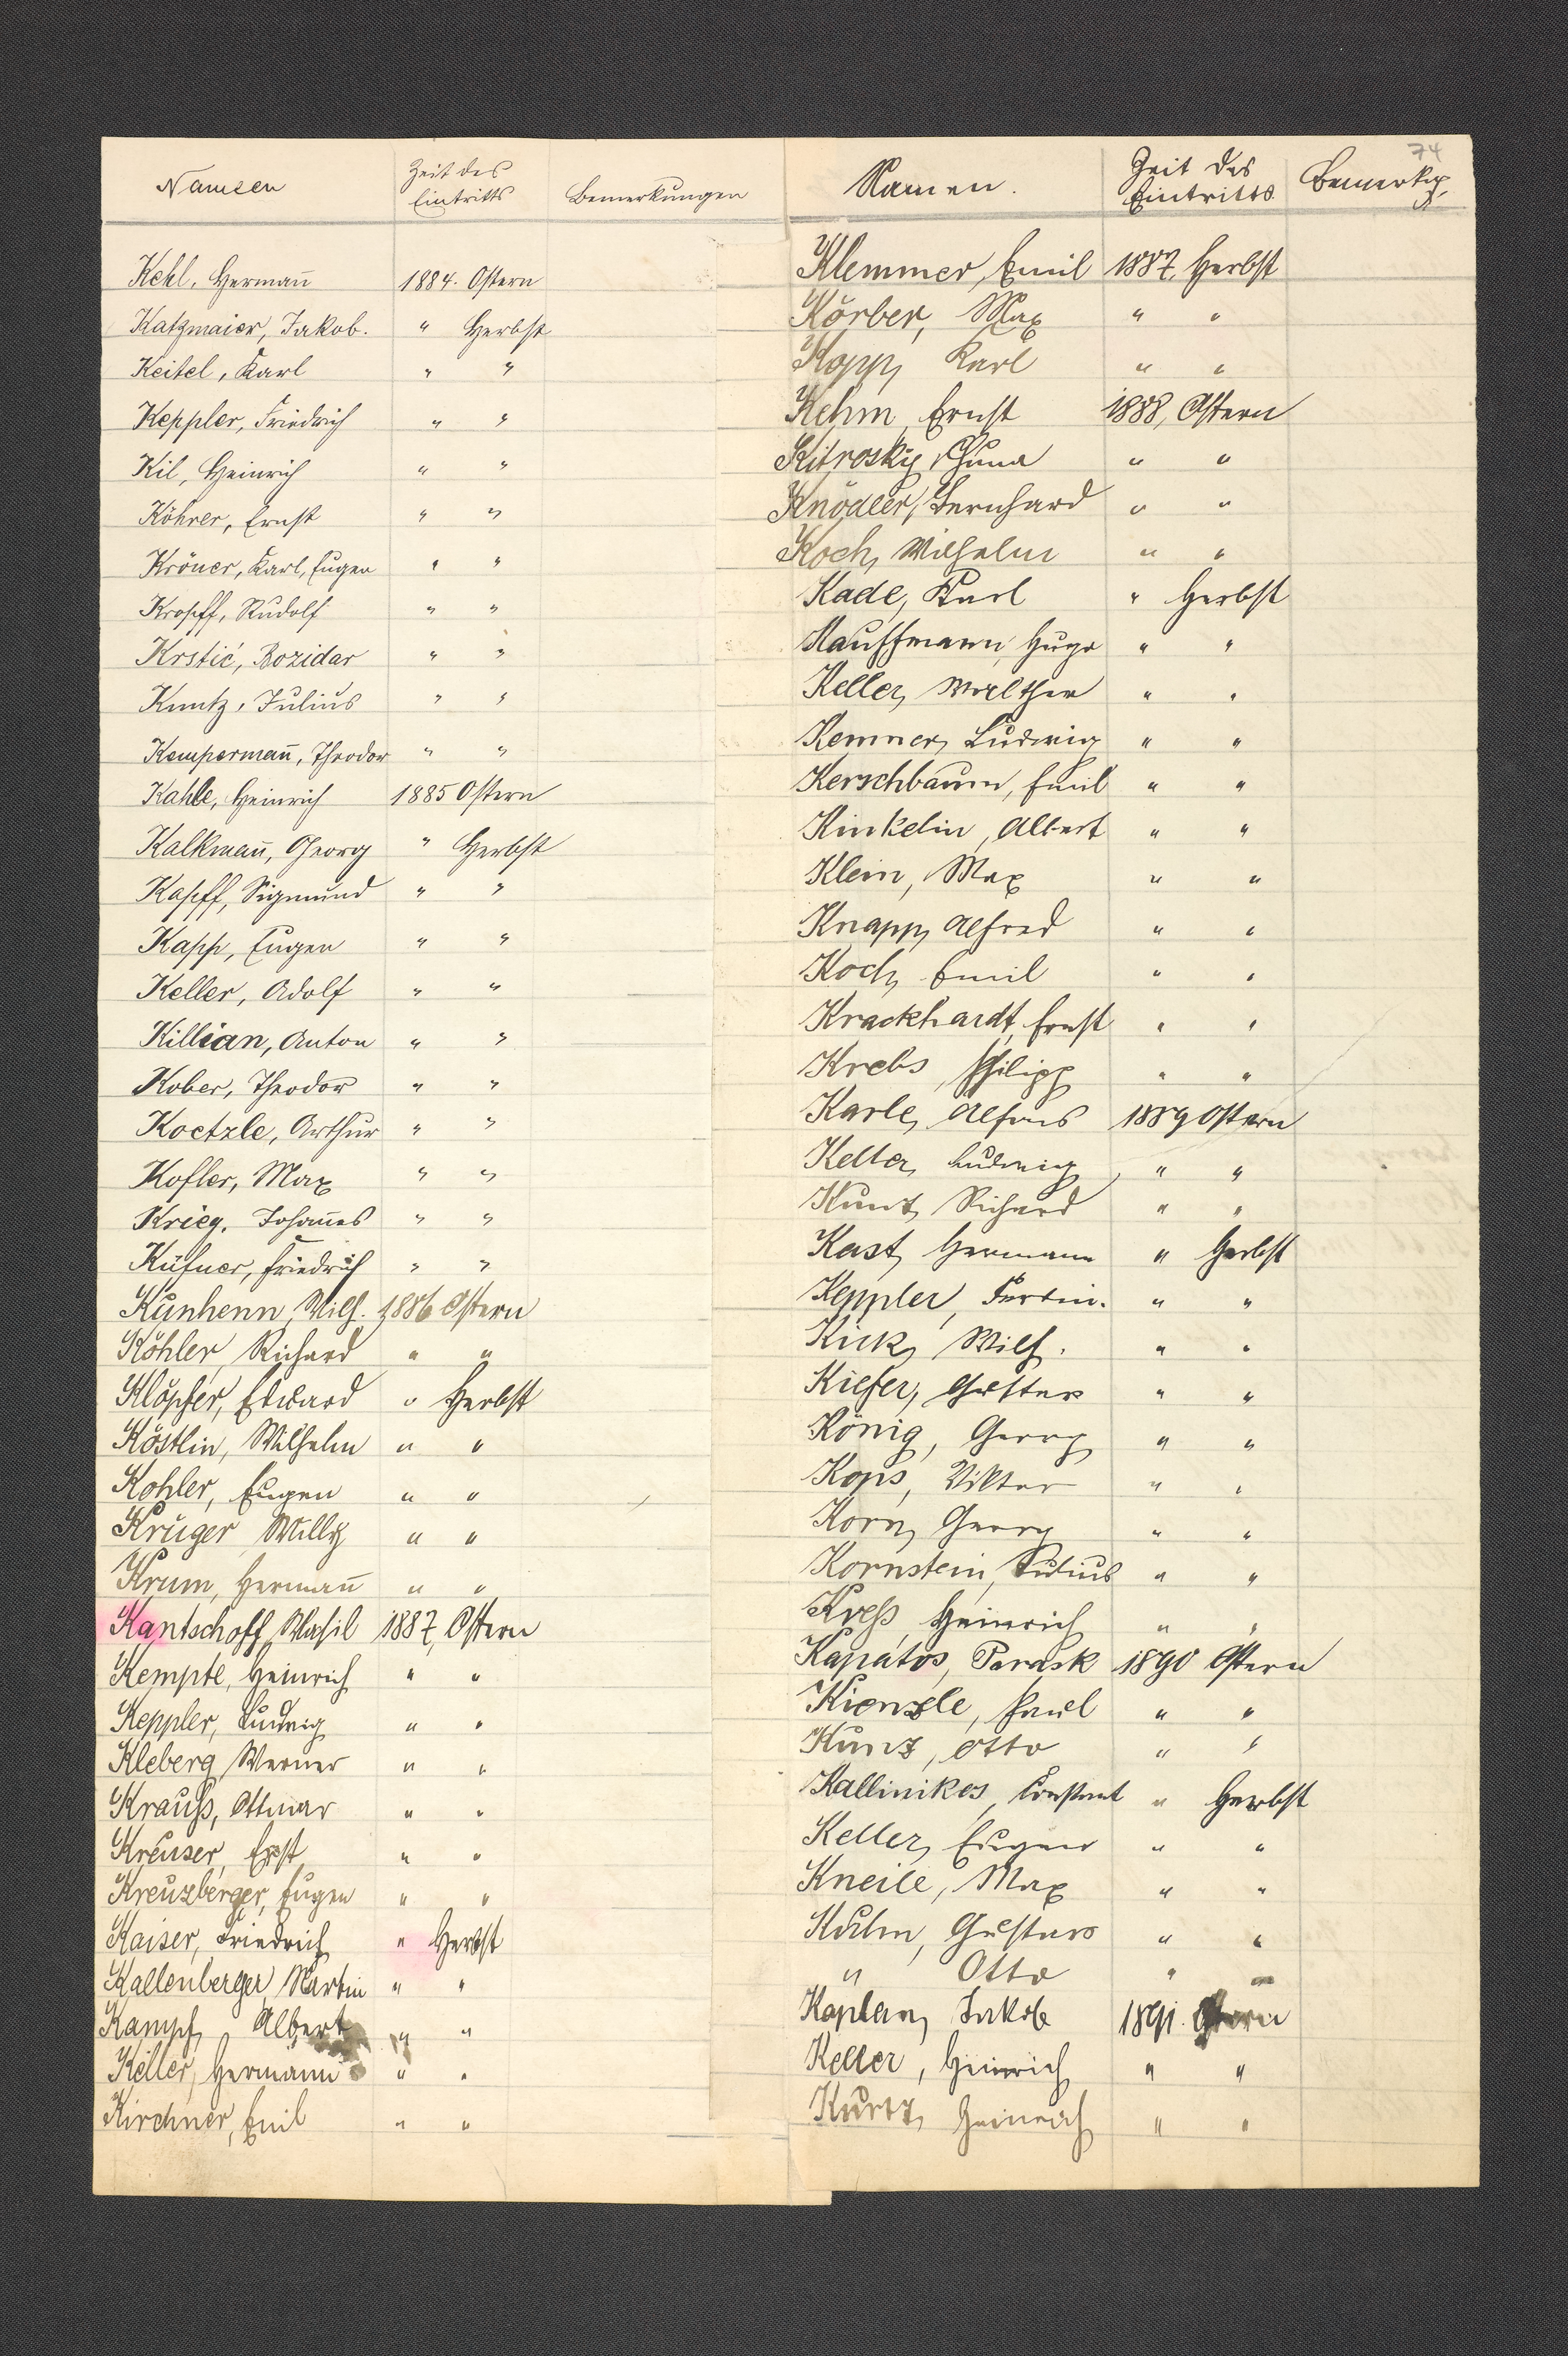 Namen Zeit des Eintritts Bemerkungen
Kehl, Hermañ 1884. Ostern
Katzmaier, Jakob. " Herbst
Keitel, Karl " "
Keppler, Friedrich " "
Kil, Heinrich " "
Köhrer, Ernst " "
Kröner, Karl, Eugen " "
Kropff, Rudolf " "
Krstić, Bozidar " "
Kuntz, Julius " "
Kempermañ, Theodor " "
Kahle, Heinrich 1885 Ostern
Kalkmañ, Georg " Herbst
Kapff, Sigmund " "
Kapp, Eugen " "
Keller, Adolf " "
Killian, Anton " "
Kober, Theodor " "
Koetzle, Arthur " "
Kofler, Max " "
Krieg, Johañes " "
Küfner, Friedrich " "
Künhenn, Wilh. 1886 Ostern
Köhler, Richard " "
Klöpfer, Eduard " Herbst
Köstlin, Wilhelm " "
Kohler, Eugen " "
Krüger Willy " "
Krum, Hermañ " "
Kantschoff, Wasil 1887, Ostern
Kempte, Heinrich " "
Keppler, Ludwig " "
Kleberg, Werner " "
Krauß, Ottmar " "
Kreuser, Ernst " "
Kreuzberger, Eugen " "
Kaiser, Friedrich " Herbst
Kallenberger, Martin " "
Kampf, Albert " "
Keller, Hermann " "
Kirchner, Emil " "
74
Namen. Zeit des Eintritts Bemerkg.
Klemmer, Emil 1887, Herbst
Körber, Max " "
Kopp, Karl " "
Kehm, Ernst 1888, Ostern
Kitrosky, Chuna " "
Knödler, Bernhard " "
Koch, Wilhelm " "
Kade, Karl " Herbst
Kauffmann, Hugo " "
Keller, Walther " "
Kemner, Ludwig " "
Kerschbaum, Emil " "
Kinkelin, Albert " "
Klein, Max " "
Knapp, Alfred " "
Koch, Emil " "
Krackhardt, Ernst " "
Krebs, Philipp " "
Karle, Alfons 1889 Ostern
Keller, Ludwig " "
Kunt, Richard " "
Kast, Hermann " Herbst
Keppler, Ferdin. " "
Kick, Wilh. " "
Kiefer, Gustav " "
König, Georg " "
Kops, Viktor " "
Korn, Georg " "
Kornstein, Julius " "
Kreß, Heinrich " "
Kapátos, Parask 1890 Ostern
Kienzle, Paul " "
Kunz, Otto " "
Kallinikos, Constant " Herbst
Keller, Eugen " "
Kneile, Max " "
Kuhn, Gustav " "
" Otto " "
Kaplan, Jakob 1891. Ostern
Keller, Heinrich " "
Kurtz, Heinrich " "